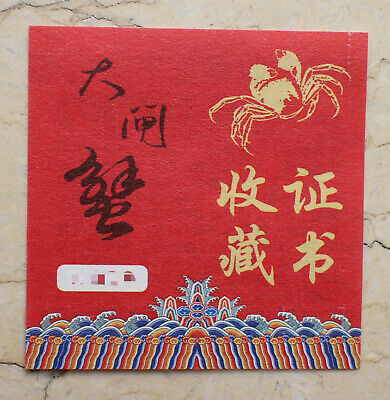 大闸蟹
收藏
证书